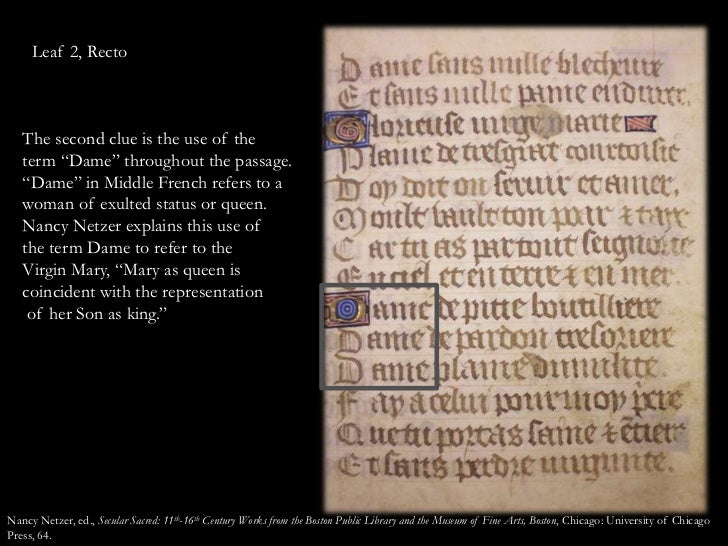 Leaf 2, Recto
The second clue is the use of the
term “Dame” throughout the passage.
“Dame” in Middle French refers to a
woman of exulted status or queen.
Nancy Netzer explains this use of
the term Dame to refer to the
Virgin Mary, “Mary as queen is
coincident with the representation
of her Son as king.”
Dame sans nulle blecheure
Et sans nulle paine endurer.
Glorieuse uirge marie
Plaine de tresgrant courtoisie
Doy doit on seruir et amer,
Moult vault ton &
Car tu as partout seignorie
En ciel et en terre & en mer.
Dame de pitie boutilliere
Dame de pardon tresoriere
Dame plaine dumilite.
Fay a celui pour moy
Que tu portas saine &
Et sans perdre
Nancy Netzer, ed., Secular Sacred: 11th-16th Century Works from the Boston Public Library and the Museum of Fine Arts, Boston, Chicago: University of Chicago
Press, 64.